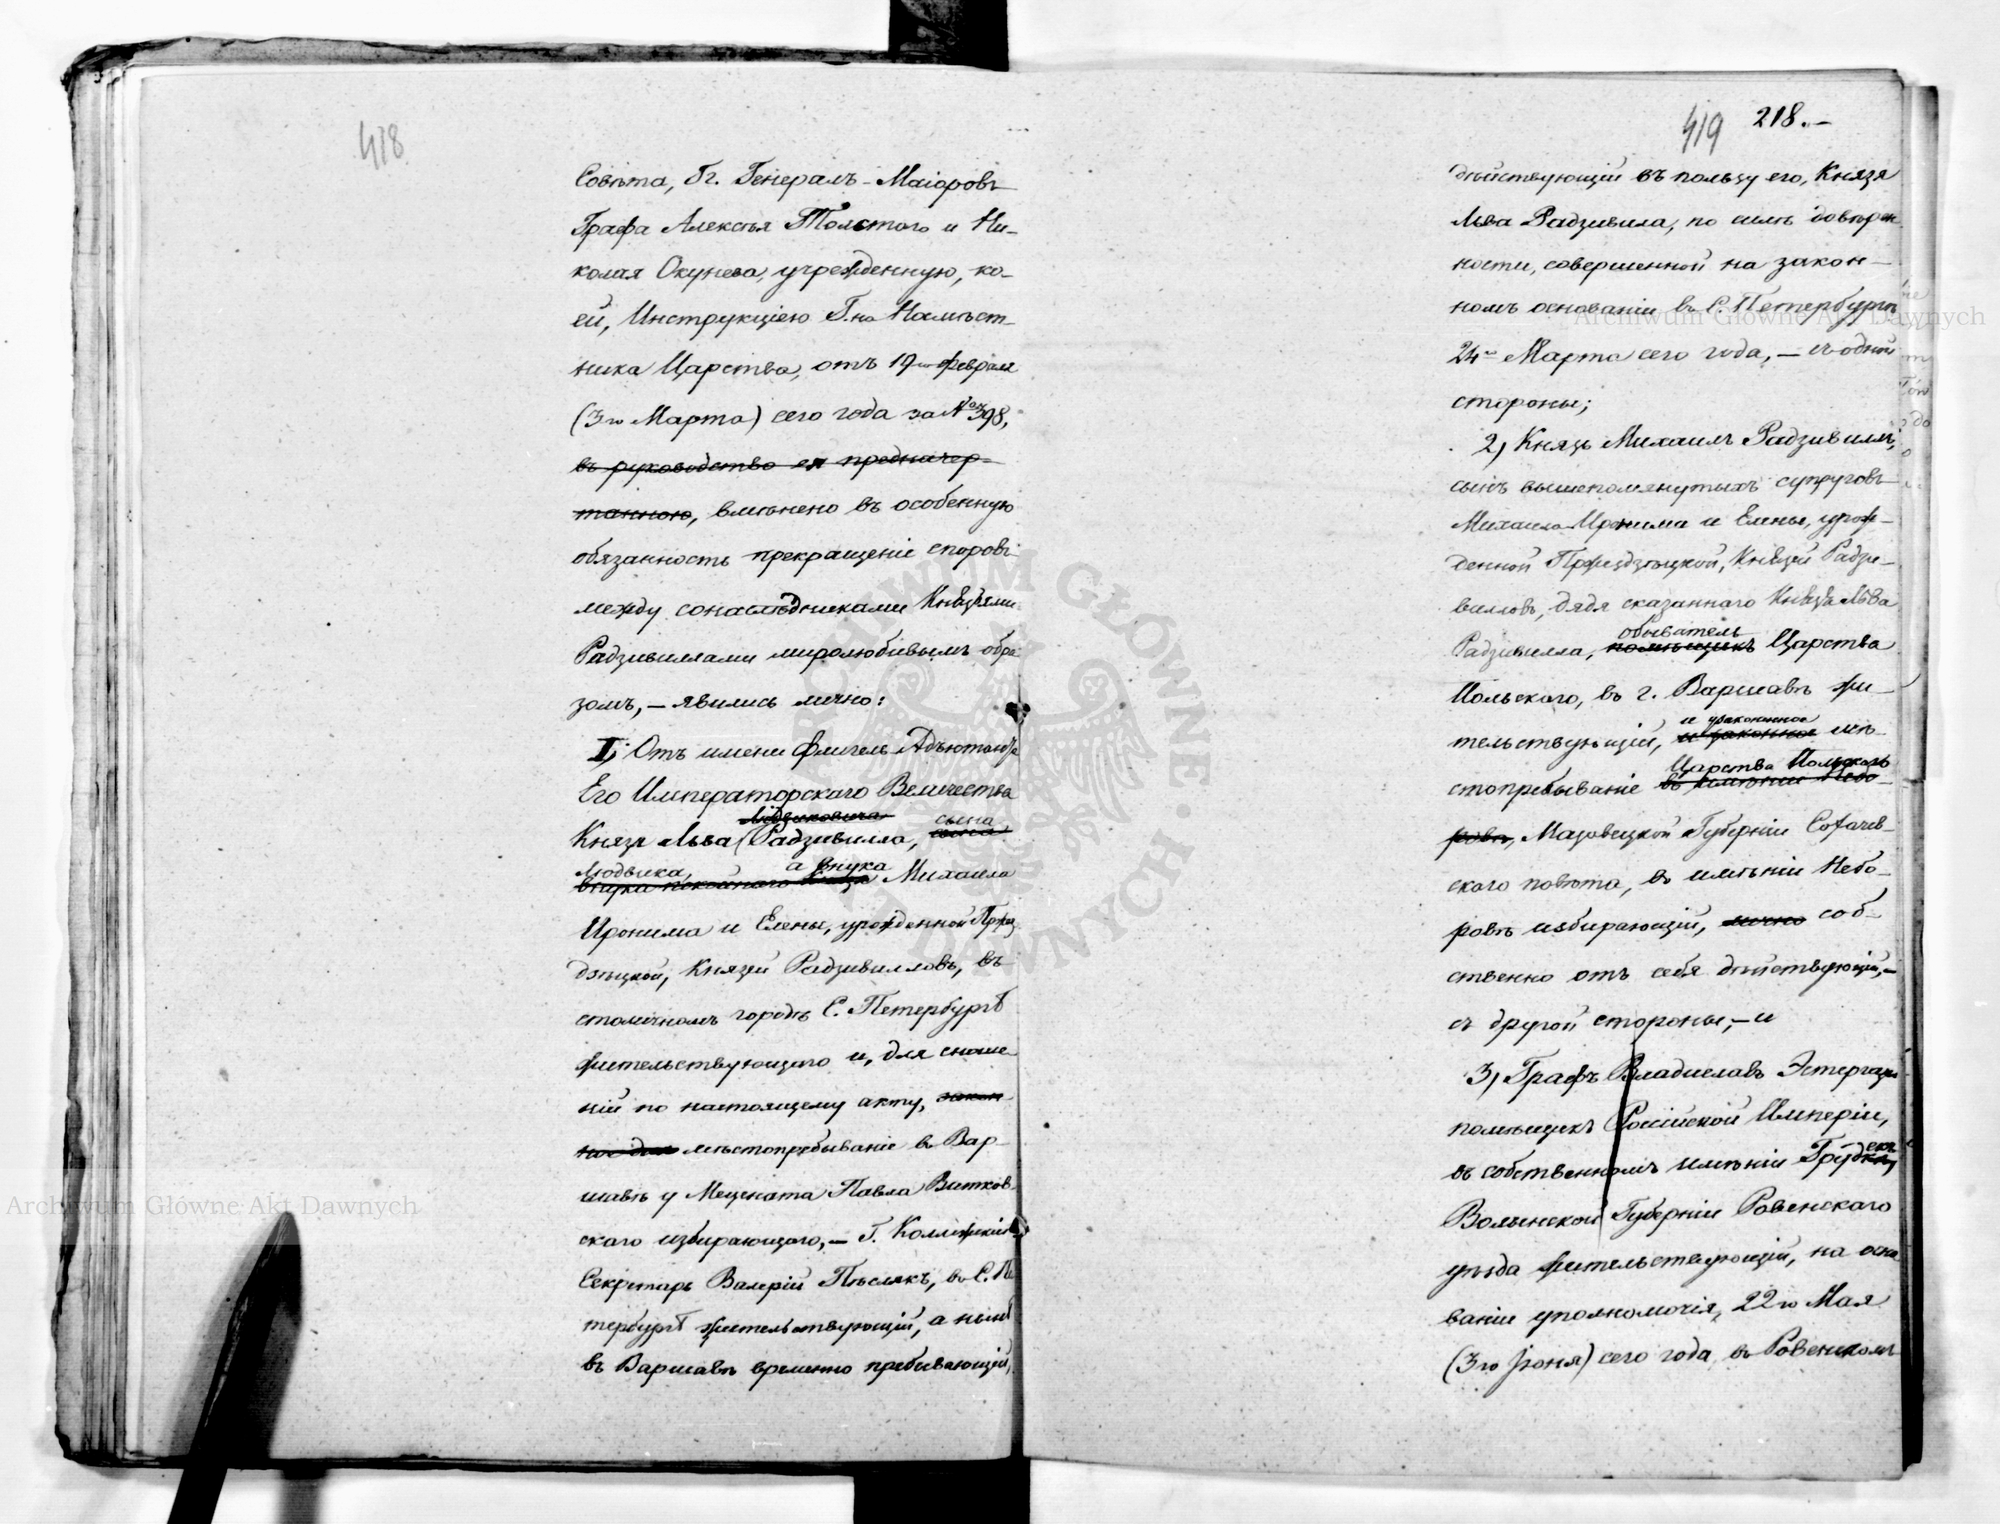 418
Совѣта, Гг. Генералъ-Маіоровъ
Графа Алексѣя Толстого и Ни-
колая Окунева, учрежденную, ко-
ей, Инструкціею Г-на Намѣст-
ника Царства, отъ 19го Февраля
(3го Марта) сего года за №398,
въ руководство ея предначер-
танною, вмѣнено въ особенную
обязанность прекращеніе споровъ
между сонаслѣдниками Князьями
Радзивиллами миролюбивымъ обра
зомъ, – явились лично:
1, Отъ имени Флигель Адъютанта
Его Императорскаго Величества
Людвиковича сына
Князя Льва Радзивилла,
Людвика, а внука
внука покойнаго Князя Михаила
Иронима и Елены, урожденной Прж
дзѣцкой, Князей Радзивилловъ, въ
столичномъ городѣ С. Петербургѣ
жительствующаго и, для сноше
ній по настоящему акту, закон
ное мѣстопребываніе въ Вар-
шавѣ у Мецената Павла Витков-
скаго избирающаго, – Г. Коллежскій
Секретарь Валерій Пѣслякъ, въ С. Пе
тербургѣ жительствующій, а нынѣ
въ Варшавѣ временно пребывающій,
419 218.–
дѣйствующій въ пользу его, Князя
Льва Радзивила, по силѣ довѣрен
ности, совершенной на закон-
номъ основаніи въ С. Петербургѣ
24го Марта сего года, – съ одной
стороны;
2, Князь Михаилъ Радзивиллъ,
сынъ вышепомянутыхъ супруговъ
Михаила Иронима и Елены, урож-
денной Пржездзѣцкой, Князей Радзи-
вилловъ, дядя сказаннаго Князя Льва
обыватель
Радзивилла, помѣщикъ Царства
Польскаго, въ г. Варшавѣ жи-
и узаконенное
тельствующій, и законное мѣ-
Царства Польскаго
стопребываніе въ имѣніи Небо-
ровѣ, Мазовецкой Губерніи Сохачев-
скаго повѣта, въ имѣніи Небо-
ровѣ избирающій, лично соб-
ственно отъ себя дѣйствующій, –
съ другой стороны, – и
3, Графъ Владиславъ Эстергази
помѣщикъ Россійской Имперіи,
въ собственномъ имѣніи
Волынской Губерніи Ровенскаго
уѣзда жительствующій, на осно
ваніи уполномочія, 22го Мая
(3го Іюня) сего года въ Ровенскомъ
Archiwum Główne Akt Dawnych
Archiwum Główne Akt Dawnych
ARCHIWUM GŁÓWNE AKT DAWNYCH